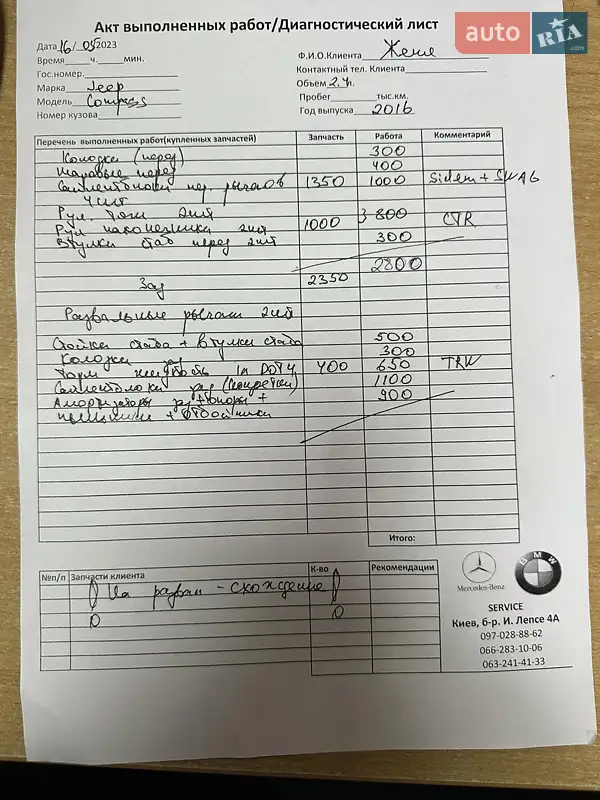 auto RIA .com
Акт выполненных работ/Диагностический лист
Дата 16/05 2023
Время____ч.____мин.
Гос.номер.
Марка Jeep
Модель Compass
Номер кузова
Ф.И.О.Клиента Женя
Контактный тел. Клиента
Объем 2.4
Пробег тыс.км.
Год выпуска 2016
Перечень выполненных работ(купленных запчастей) Запчасть Работа Комментарий
Колодки (перед) 300
Шаровые перед 400
Сайлентблоки пер. рычагов 1350 1000 Sidem + SWAG
4шт
Рул. тяги 2шт 800
Рул наконечники 2шт 1000 CTR
Втулки стаб перед 2шт 300
2800
Зад 2350
Развальные рычаги 2шт
Стойки стаба + Втулки стаба 500
Колодки зад 300
Торм жидкость 1л DOT4 400 650 TRW
Сайлентблоки зад 1100
Амортизаторы зад + опоры + 900
пыльники + отбойники
Итого:
№п/п Запчасти клиента К-во Рекомендации
На развал - схождение
Mercedes-Benz
BMW
SERVICE
Киев, б-р. И. Лепсе 4А
097-028-88-62
066-283-10-06
063-241-41-33